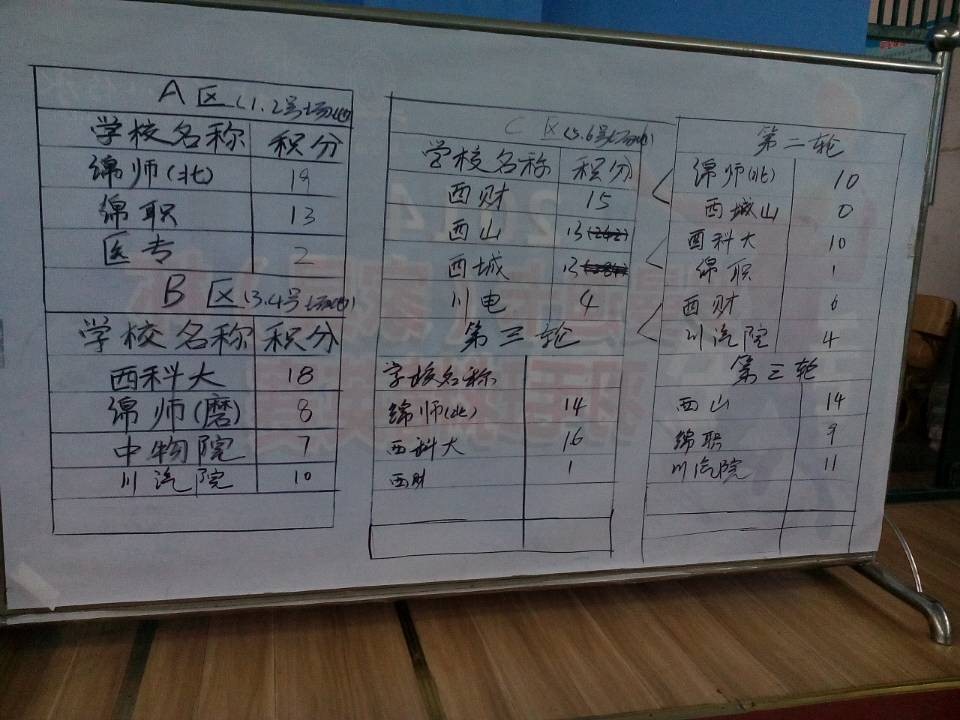 A区(1.2号场地)
学校名称 积分
绵师(北)
绵职 13
医专 2
B区(3.4号场地)
学校名称 积分
西科大 18
绵师(磨) 8
中物院 7
川汽院 10
C区(5.6号场地)
学校名称 积分
西财 15
西山 13
西城 13
川电 4
第三轮
学校名称
绵师(北) 14
西科大 16
西财 1
第二轮
绵师(北) 10
西城山 0
西科大 10
绵职 1
西财 6
川汽院 4
第三轮
西山 14
绵职 9
川汽院 11